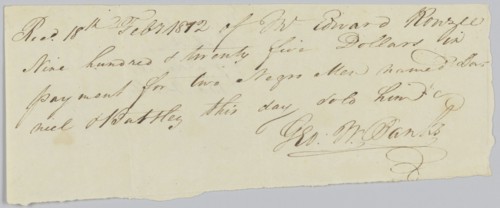 Recd. 18th Feby 1812 of Mr Edward Rouzee
Nine hundred & twenty five Dollars in
payment for two Negro Men named Dan
neel & Battley this day sold him &c
Geo: W. Banks